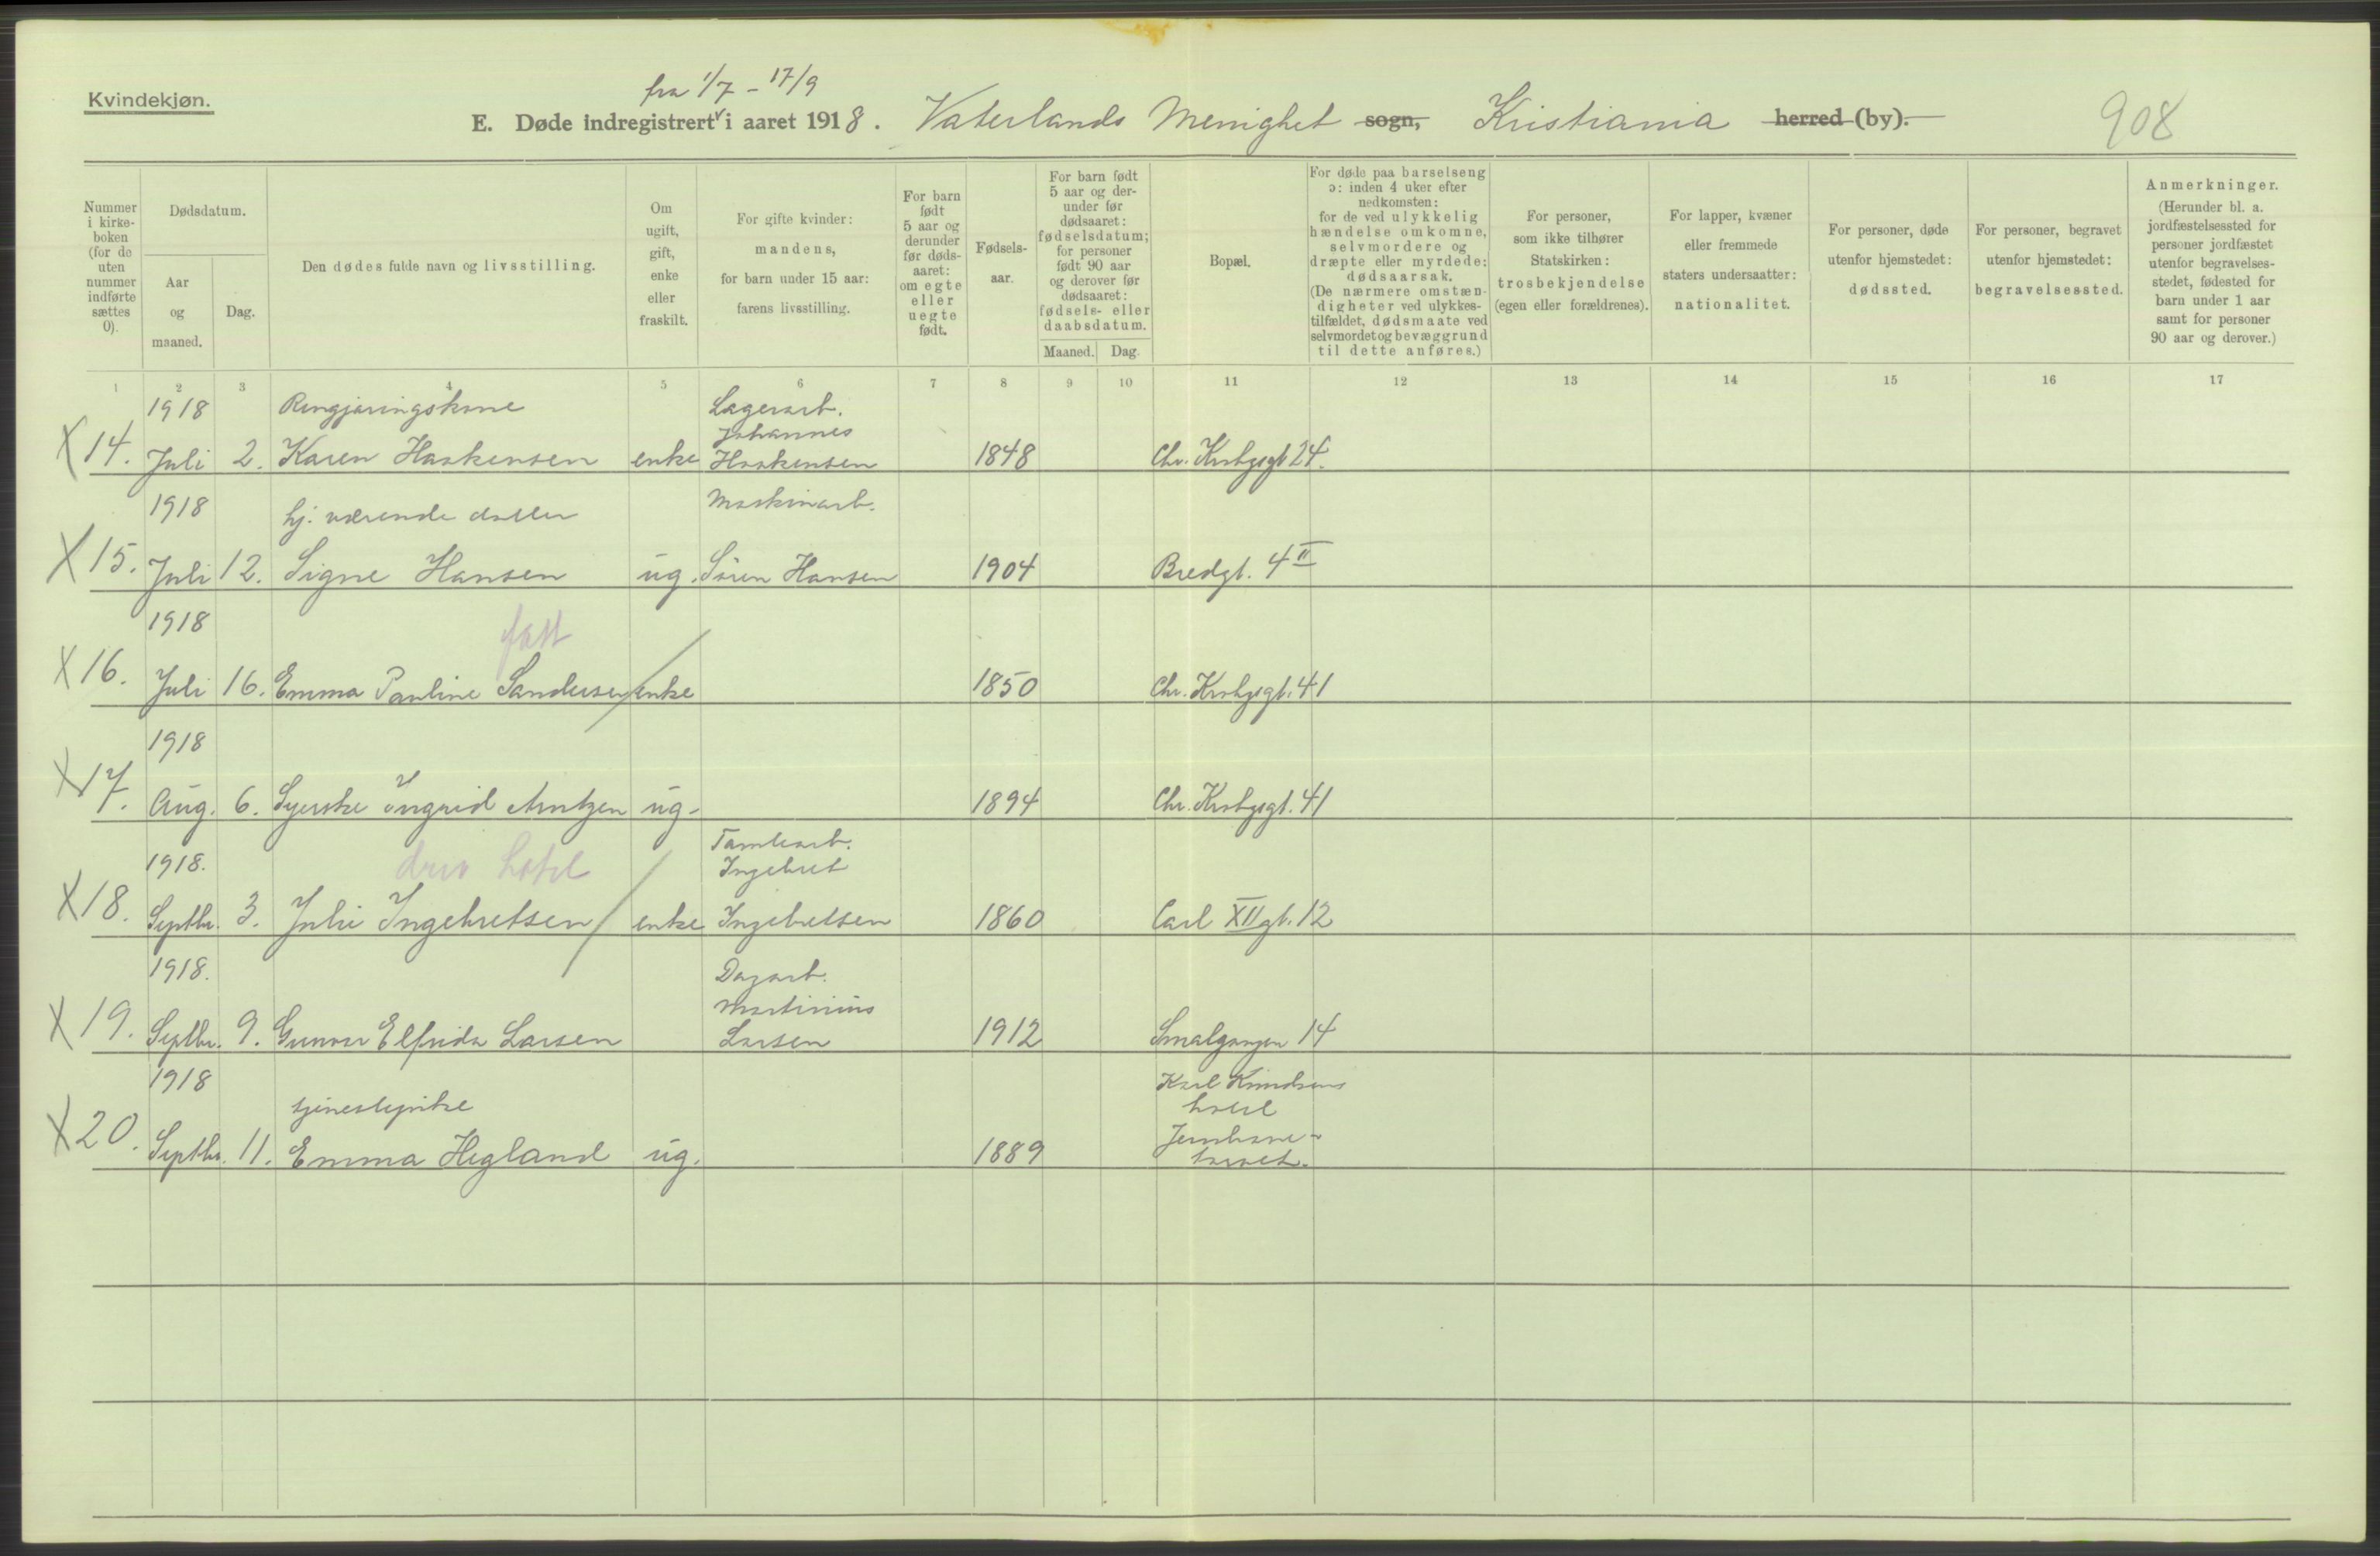 Kvindekjøn.
fra 1/7 - 17/9
E. Døde indregistrert i aaret 1918. Vaterlands Menighet sogn, Kristiania herred (by).
908
Nummer i kirke-boken (for de uten nummer indførte sættes 0).
Dødsdatum.
Aar og maaned.
Dag.
Den dødes fulde navn og livsstilling.
Om ugift, gift, enke eller fraskilt.
For gifte kvinder: mandens, for barn under 15 aar: farens livsstilling.
For barn født 5 aar og derunder før døds-aaret: om egte eller uegte født.
Fødsels-aar.
For barn født 5 aar og der-under før dødsaaret: fødselsdatum; for personer født 90 aar og derover før dødsaaret: fødsels- eller daabsdatum.
Maaned. Dag.
Bopæl.
For døde paa barselseng ɔ: inden 4 uker efter nedkomsten: for de ved ulykkelig hændelse omkomne, selvmordere og dræpte eller myrdede: dødsaarsak. (De nærmere omstæn-digheter ved ulykkes-tilfældet, dødsmaate ved selvmordet og bevæggrund til dette anføres.)
For personer, som ikke tilhører Statskirken: trosbekjendelse (egen eller forældrenes).
For lapper, kvæner eller fremmede staters undersaatter: nationalitet.
For personer, døde utenfor hjemstedet: dødssted.
For personer, begravet utenfor hjemstedet: begravelsessted.
Anmerkninger. (Herunder bl. a. jordfæstelsessted for personer jordfæstet utenfor begravelses-stedet, fødested for barn under 1 aar samt for personer 90 aar og derover.)
1 2 3 4 5 6 7 8 9 10 11 12 13 14 15 16 17
1918 Rengjøringskone Lagerarb.
Johannes
X 14. Juli 2. Karen Haakensen enke Haakensen 1848 Chr. Krohgsgt 24.
1918 hj. værende datter Maskinarb.
X 15. Juli 12. Signe Hansen ug. Sören Hansen 1904 Bredgt. 4 II
1918 fatt
X 16. Juli 16. Emma Pauline Sandersen enke 1850 Chr. Krohgsgt. 41
1918
X 17. Aug. 6. Syerske Ingrid Arntzen ug. 1894 Chr. Krohgsgt. 41
1918. drev hotel Tomtearb.
Ingebret
X 18. Septbr. 3. Julie Ingebretsen enke Ingebretsen 1860 Carl XII gt. 12
1918. Dagarb.
Martinius
X 19. Septbr. 9. Gunvor Elfrida Larsen Larsen 1912 Smalgangen 14
1918 tjenestepike Karl Knudsens
hotel
Jernbane-
X 20. Septbr. 11. Emma Hegland ug. 1889 torvet.